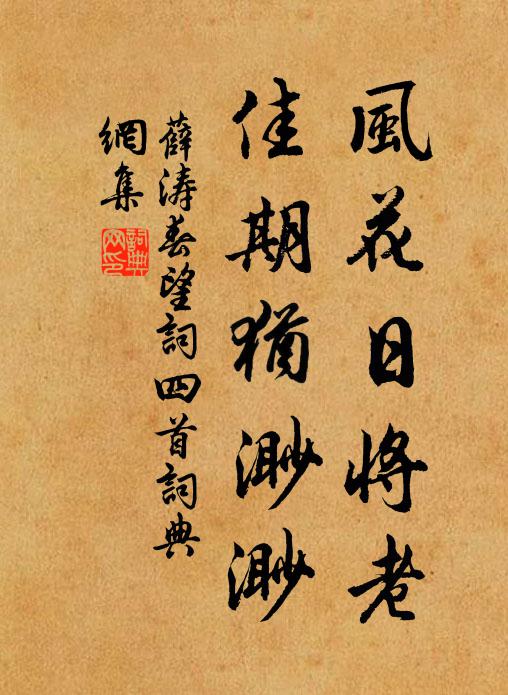 風花日將老
佳期猶渺渺
薛濤春望詞四首詞典
網集
詞典網印